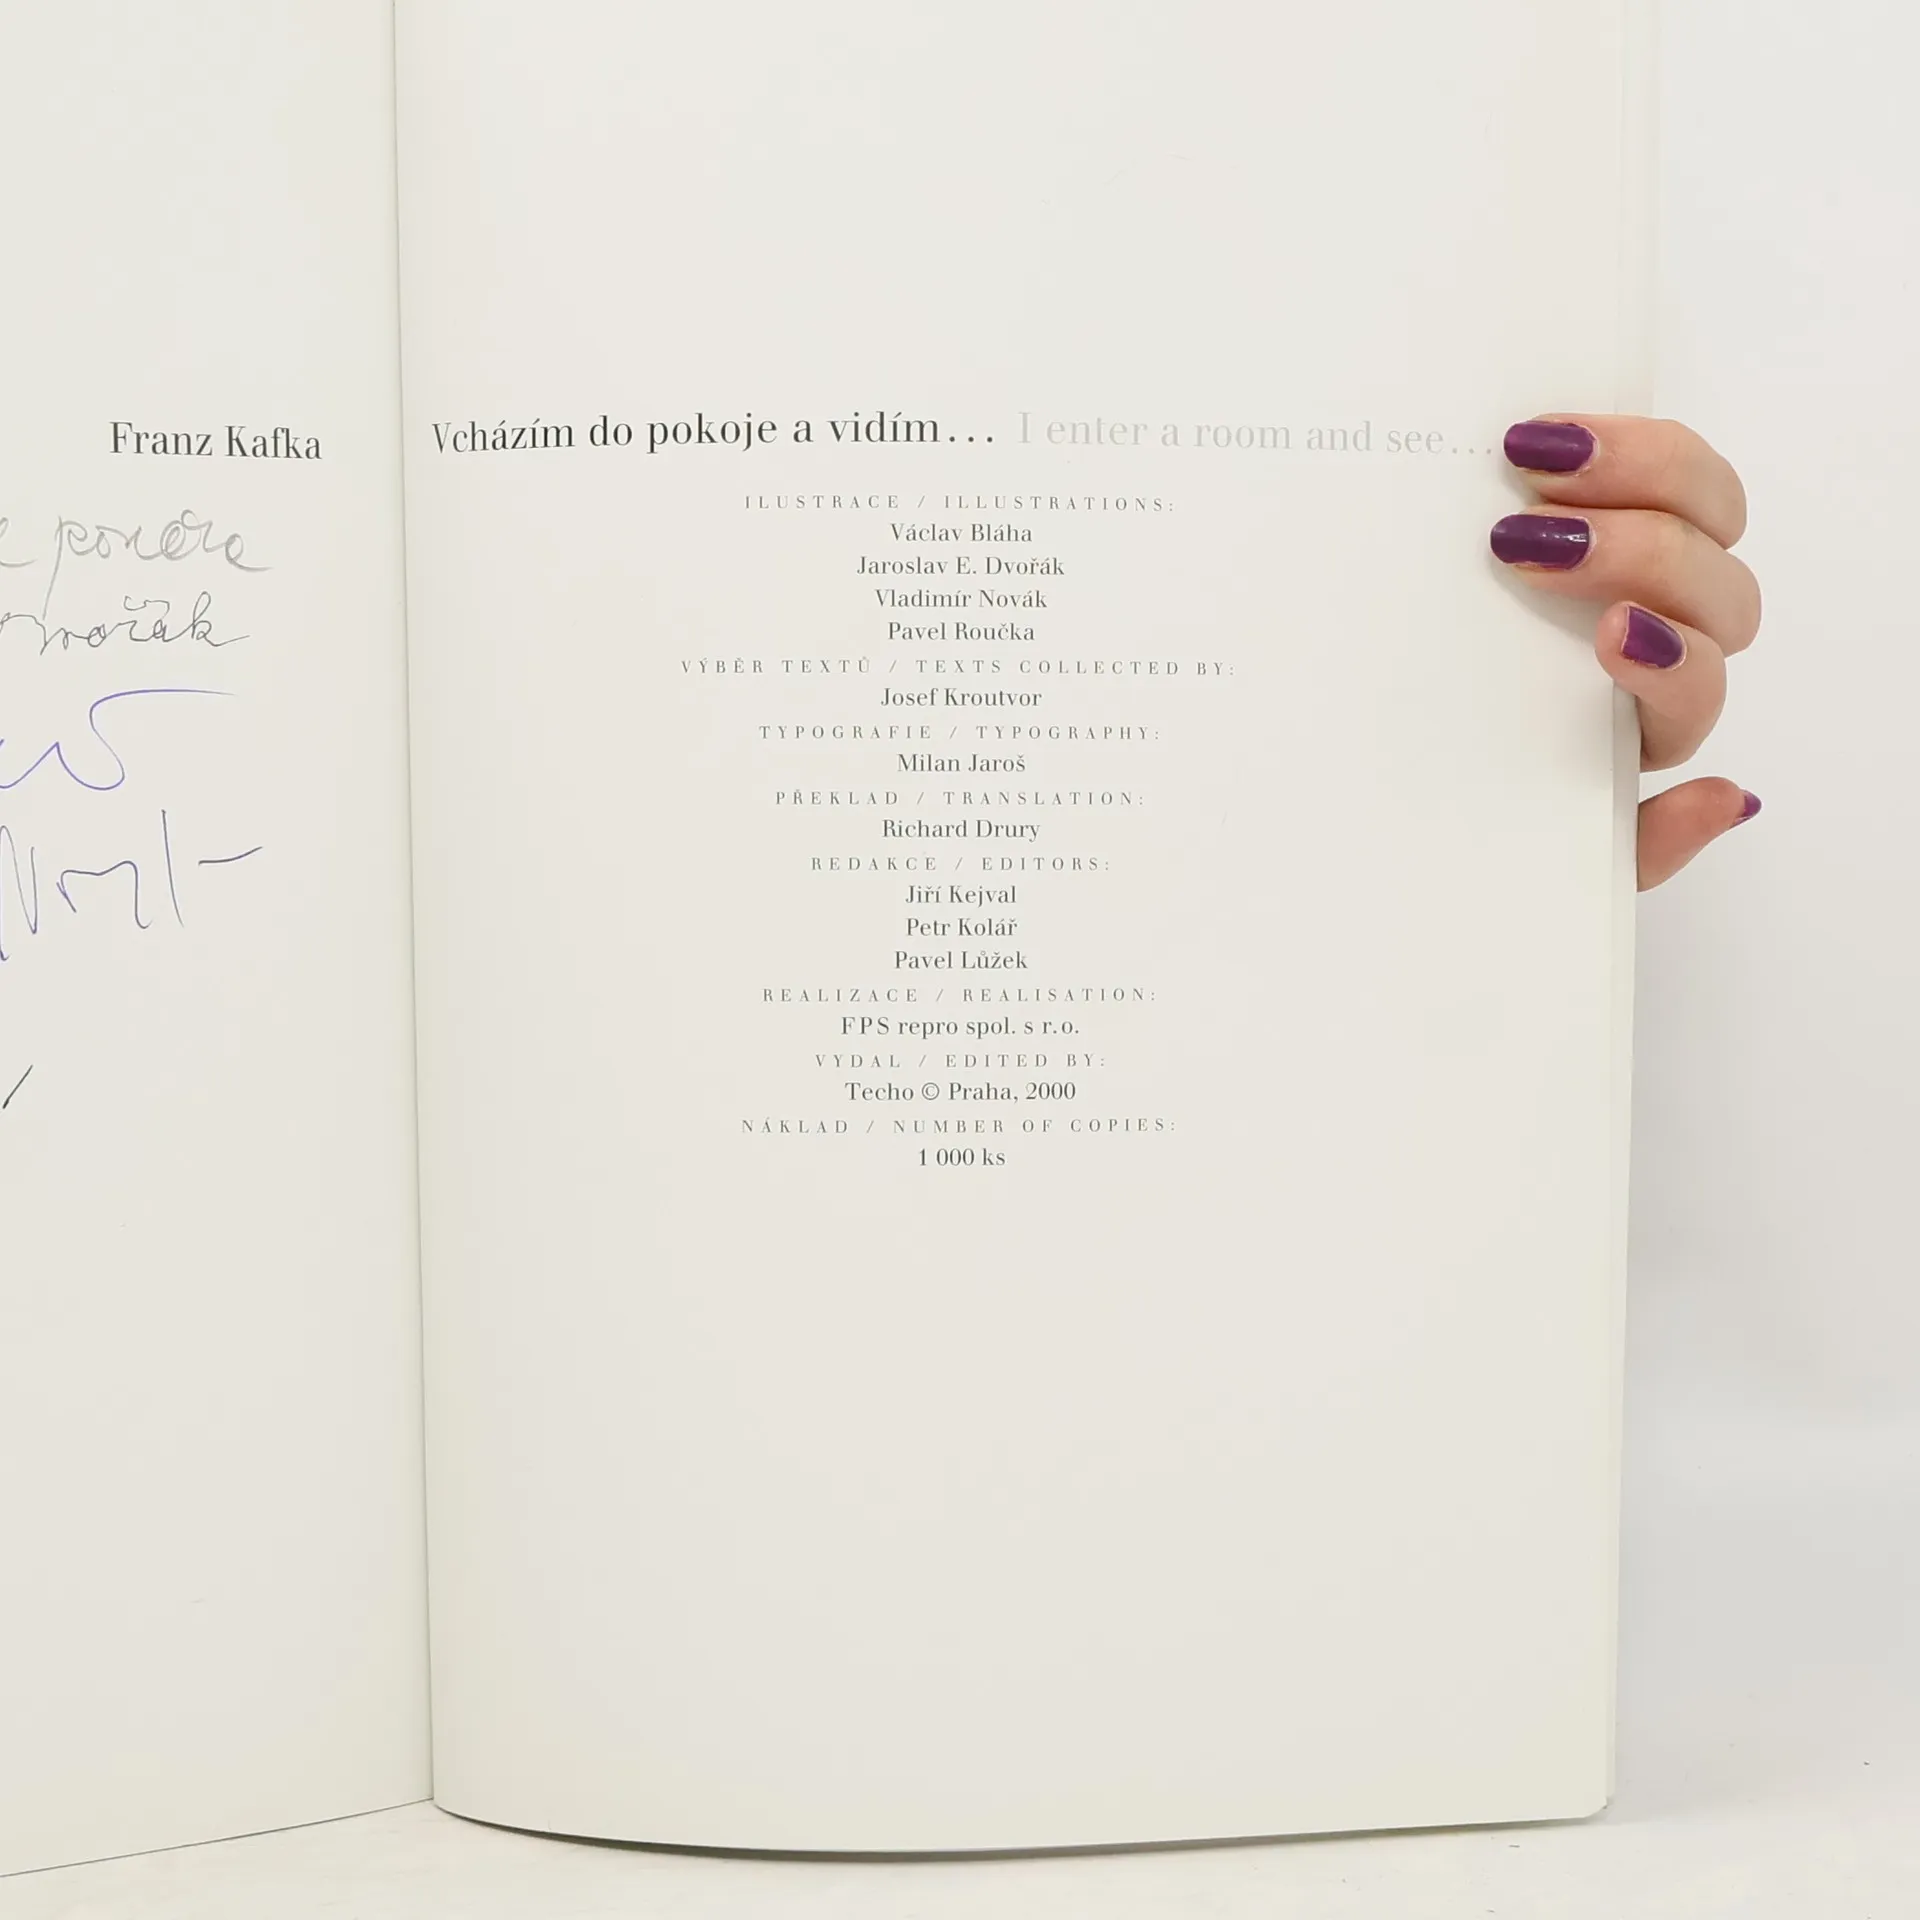 Franz Kafka
Dvořák
Vcházím do pokoje a vidím... I enter a room and see...
ILUSTRACE / ILLUSTRATIONS:
Václav Bláha
Jaroslav E. Dvořák
Vladimír Novák
Pavel Roučka
VÝBĚR TEXTŮ / TEXTS COLLECTED BY:
Josef Kroutvor
TYPOGRAFIE / TYPOGRAPHY:
Milan Jaroš
PŘEKLAD / TRANSLATION:
Richard Drury
REDAKCE / EDITORS:
Jiří Kejval
Petr Kolář
Pavel Lůžek
REALIZACE / REALISATION:
FPS repro spol. s r.o.
VYDAL / EDITED BY:
Techo © Praha, 2000
NÁKLAD / NUMBER OF COPIES:
1 000 ks